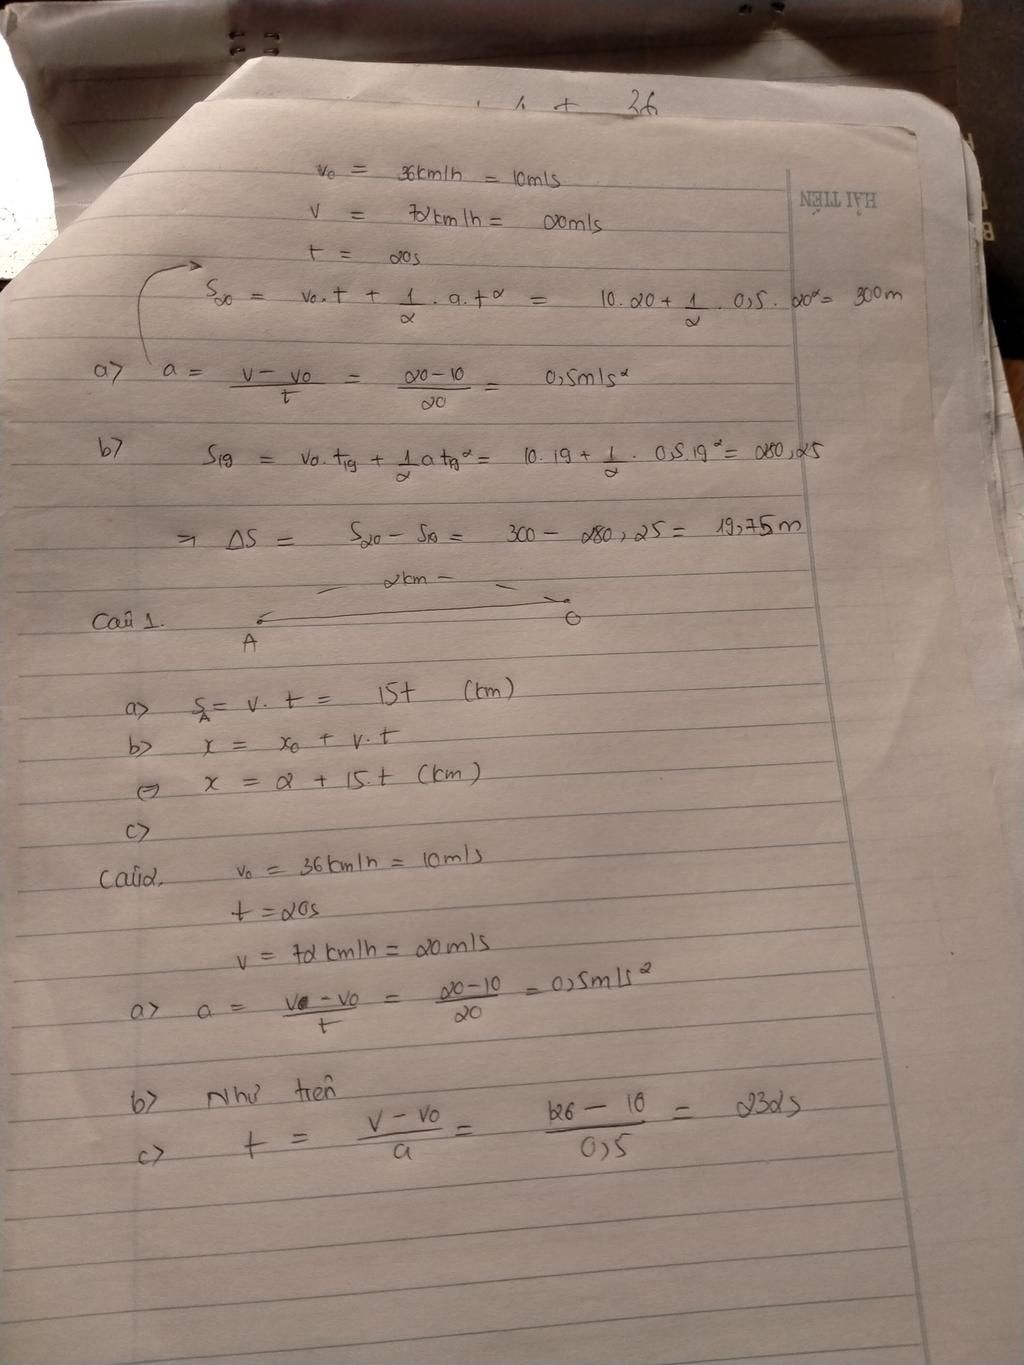 36
HẢI TIẾN
v₀ = 36km/h = 10m/s
v = 72km/h = 20m/s
t = 20s
S₂₀ = v₀.t + 1/2 . a.t² = 10.20 + 1/2 . 0,5 . 20² = 300m
a> a = (v - v₀)/t = (20-10)/20 = 0,5m/s²
b> S₁₉ = v₀.t₁₉ + 1/2 a t₁₉² = 10.19 + 1/2 . 0,5.19² = 280,25
=> ΔS = S₂₀ - S₁₉ = 300 - 280,25 = 19,75m
2km
Câu 1. A O
a> S_A = v.t = 15t (km)
b> x = x₀ + v.t
⇔ x = 2 + 15.t (km)
c>
Câu 2. v₀ = 36km/h = 10m/s
t = 20s
v = 72km/h = 20m/s
a> a = (v - v₀)/t = (20-10)/20 = 0,5m/s²
b> Như trên
c> t = (v - v₀)/a = (126 - 10)/0,5 = 232s